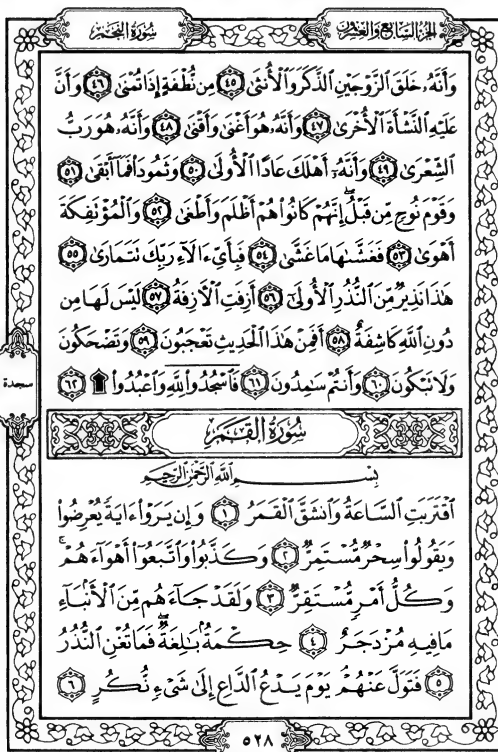 الجزء السابع والعشرون
سورة النجم
وَأَنَّهُۥ خَلَقَ ٱلزَّوْجَيْنِ ٱلذَّكَرَ وَٱلْأُنثَىٰ ٤٥ مِن نُّطْفَةٍ إِذَا تُمْنَىٰ ٤٦ وَأَنَّ
عَلَيْهِ ٱلنَّشْأَةَ ٱلْأُخْرَىٰ ٤٧ وَأَنَّهُۥ هُوَ أَغْنَىٰ وَأَقْنَىٰ ٤٨ وَأَنَّهُۥ هُوَ رَبُّ
ٱلشِّعْرَىٰ ٤٩ وَأَنَّهُۥٓ أَهْلَكَ عَادًا ٱلْأُولَىٰ ٥٠ وَثَمُودَا۟ فَمَآ أَبْقَىٰ ٥١
وَقَوْمَ نُوحٍ مِّن قَبْلُ ۖ إِنَّهُمْ كَانُوا۟ هُمْ أَظْلَمَ وَأَطْغَىٰ ٥٢ وَٱلْمُؤْتَفِكَةَ
أَهْوَىٰ ٥٣ فَغَشَّىٰهَا مَا غَشَّىٰ ٥٤ فَبِأَىِّ ءَالَآءِ رَبِّكَ تَتَمَارَىٰ ٥٥
هَٰذَا نَذِيرٌ مِّنَ ٱلنُّذُرِ ٱلْأُولَىٰٓ ٥٦ أَزِفَتِ ٱلْأَزِفَةُ ٥٧ لَيْسَ لَهَا مِن
دُونِ ٱللَّهِ كَاشِفَةٌ ٥٨ أَفَمِنْ هَٰذَا ٱلْحَدِيثِ تَعْجَبُونَ ٥٩ وَتَضْحَكُونَ
وَلَا تَبْكُونَ ٦٠ وَأَنتُمْ سَٰمِدُونَ ٦١ فَٱسْجُدُوا۟ لِلَّهِ وَٱعْبُدُوا۟ ۩ ٦٢
سجدة
سورة القمر
بِسْمِ ٱللَّهِ ٱلرَّحْمَٰنِ ٱلرَّحِيمِ
ٱقْتَرَبَتِ ٱلسَّاعَةُ وَٱنشَقَّ ٱلْقَمَرُ ١ وَإِن يَرَوْا۟ ءَايَةً يُعْرِضُوا۟
وَيَقُولُوا۟ سِحْرٌ مُّسْتَمِرٌّ ٢ وَكَذَّبُوا۟ وَٱتَّبَعُوٓا۟ أَهْوَآءَهُمْ ۚ
وَكُلُّ أَمْرٍ مُّسْتَقِرٌّ ٣ وَلَقَدْ جَآءَهُم مِّنَ ٱلْأَنۢبَآءِ
مَا فِيهِ مُزْدَجَرٌ ٤ حِكْمَةٌۢ بَٰلِغَةٌ ۖ فَمَا تُغْنِ ٱلنُّذُرُ
٥ فَتَوَلَّ عَنْهُمْ ۘ يَوْمَ يَدْعُ ٱلدَّاعِ إِلَىٰ شَىْءٍ نُّكُرٍ ٦
٥٢٨